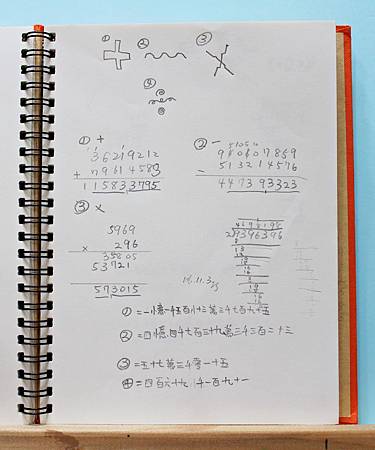 ① ② ③
④
① + ② −
36219212
+ 79614583
115833795
513214576
−
447393323
③ ×
5969
× 296
35805
53721
573015
2 9396396
①=一憶一千五百八十三萬三千七百九十五
②=四憶四千七百三十九萬三千三百二十三
③=五十七萬三千零一十五
④=四百六十九
千一百九十一